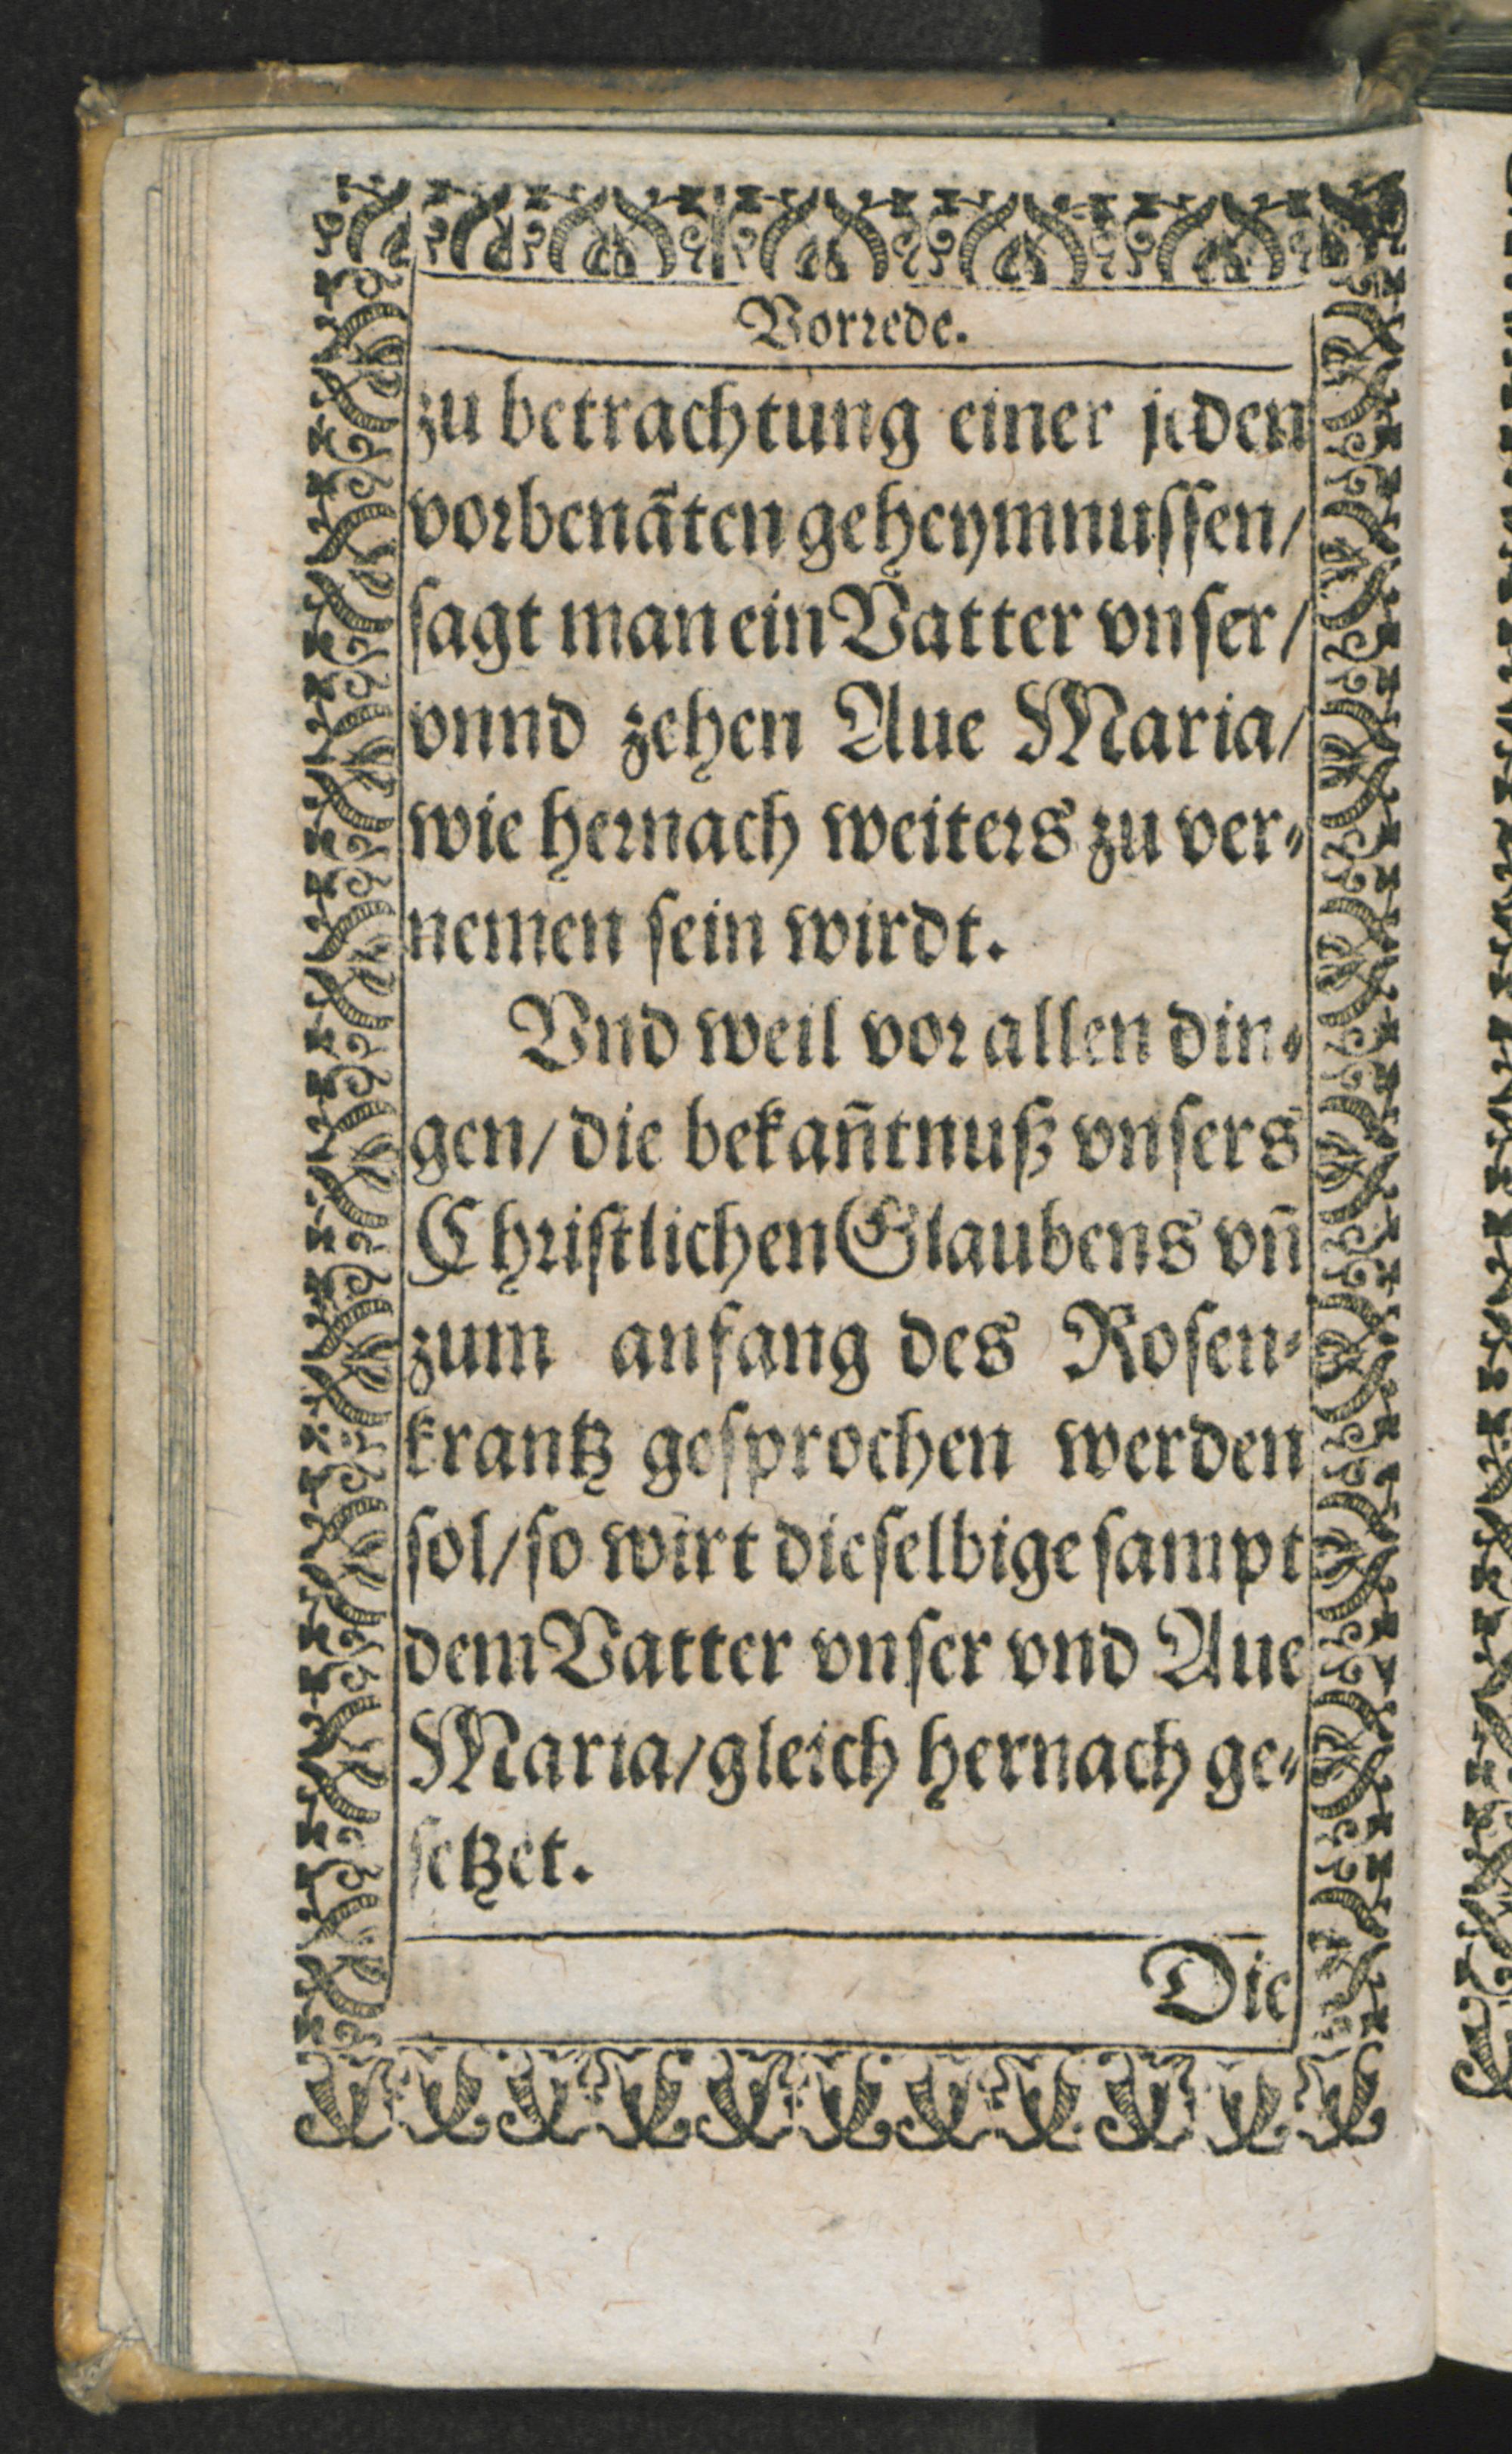 Vorrede.
zu betrachtung einer jeden
vorbenãten geheymnuſſen/
ſagt man ein Vatter vnſer/
vnnd zehen Aue Maria/
wie hernach weiters zu ver⸗
nemen ſein wirdt.
Vnd weil vor allen din⸗
gen/ die bekañtnuß vnſers
Chriſtlichen Glaubens vñ
zum anfang des Roſen⸗
krantz geſprochen werden
ſol/ ſo wirt dieſelbige ſampt
dem Vatter vnſer vnd Aue
Maria/ gleich hernach ge⸗
ſetzet.
Die